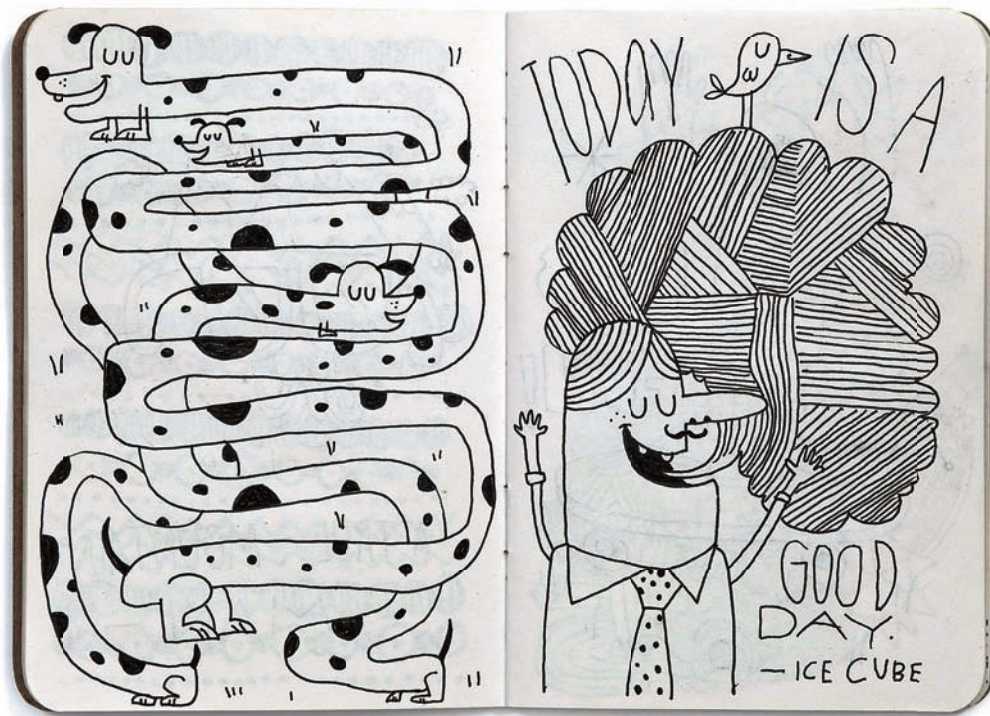 TODAY IS A
GOOD
DAY.
— ICE CUBE